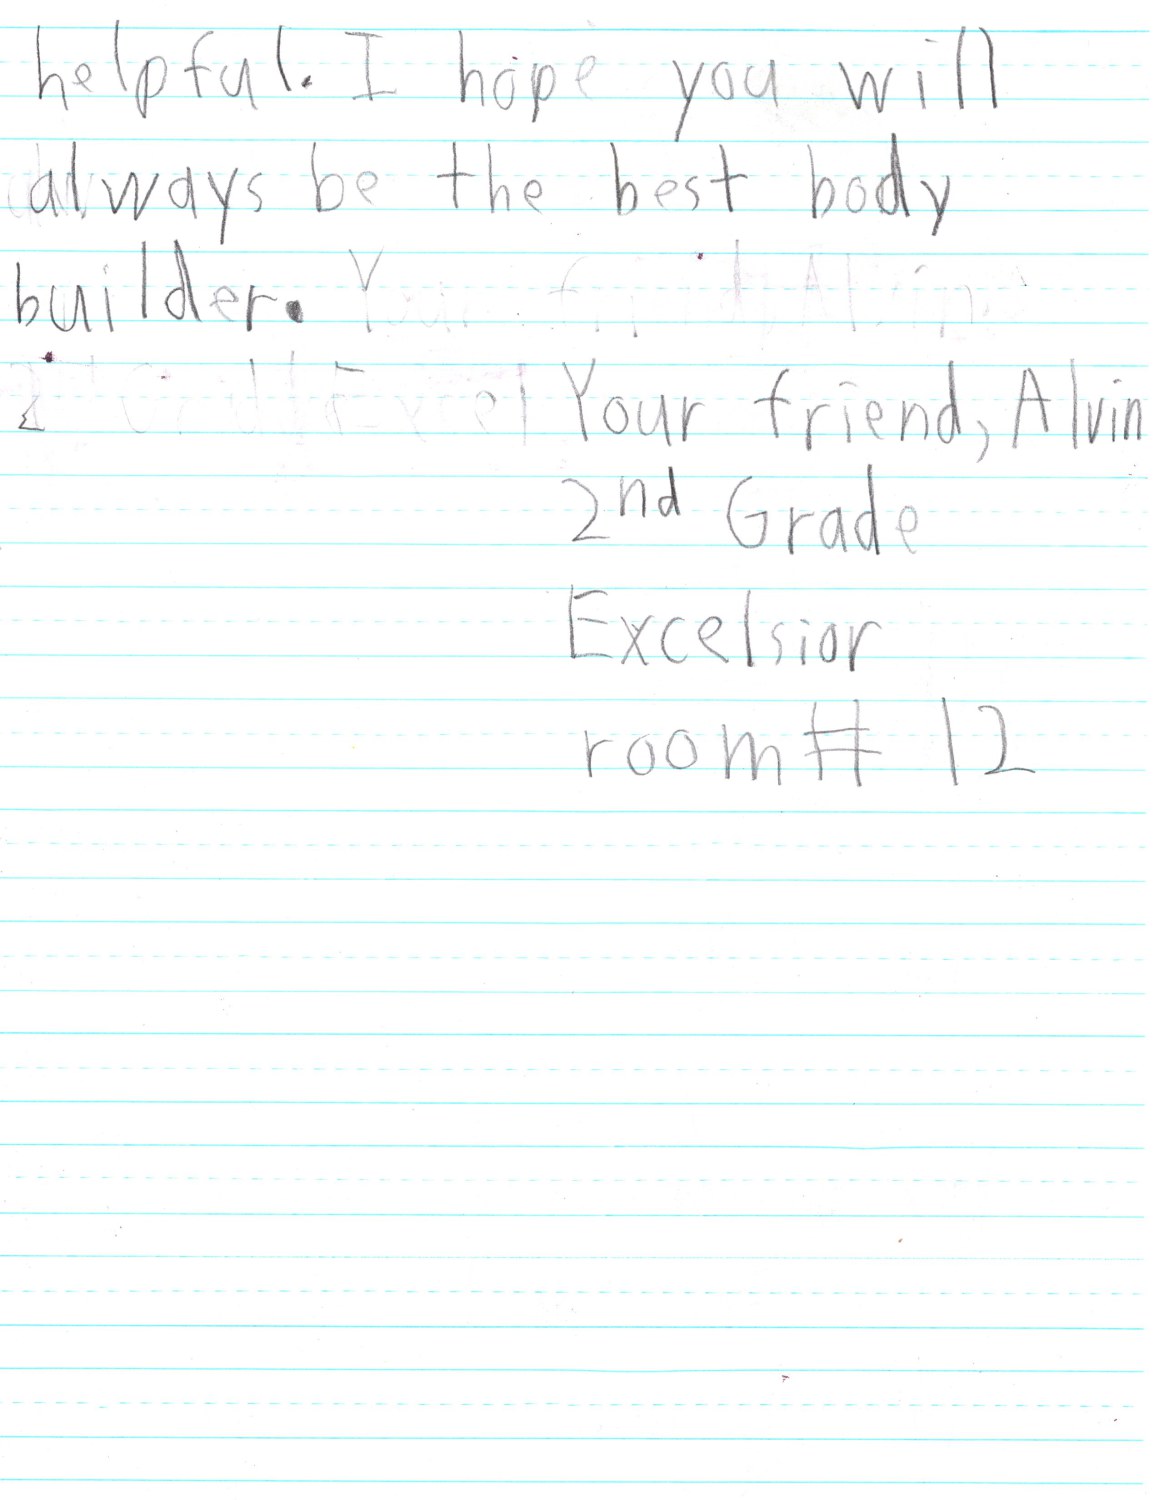 helpful. I hope you will
always be the best body
builder.
Your friend, Alvin
2nd Grade
Excelsior
room # 12